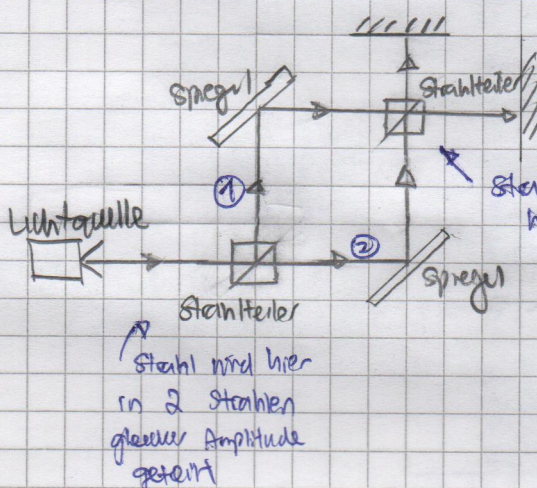 Spiegel
Strahlteiler
①
Lichtquelle
②
Spiegel
Strahlteiler
Strahl wird hier
in 2 Strahlen
gleicher Amplitude
geteilt